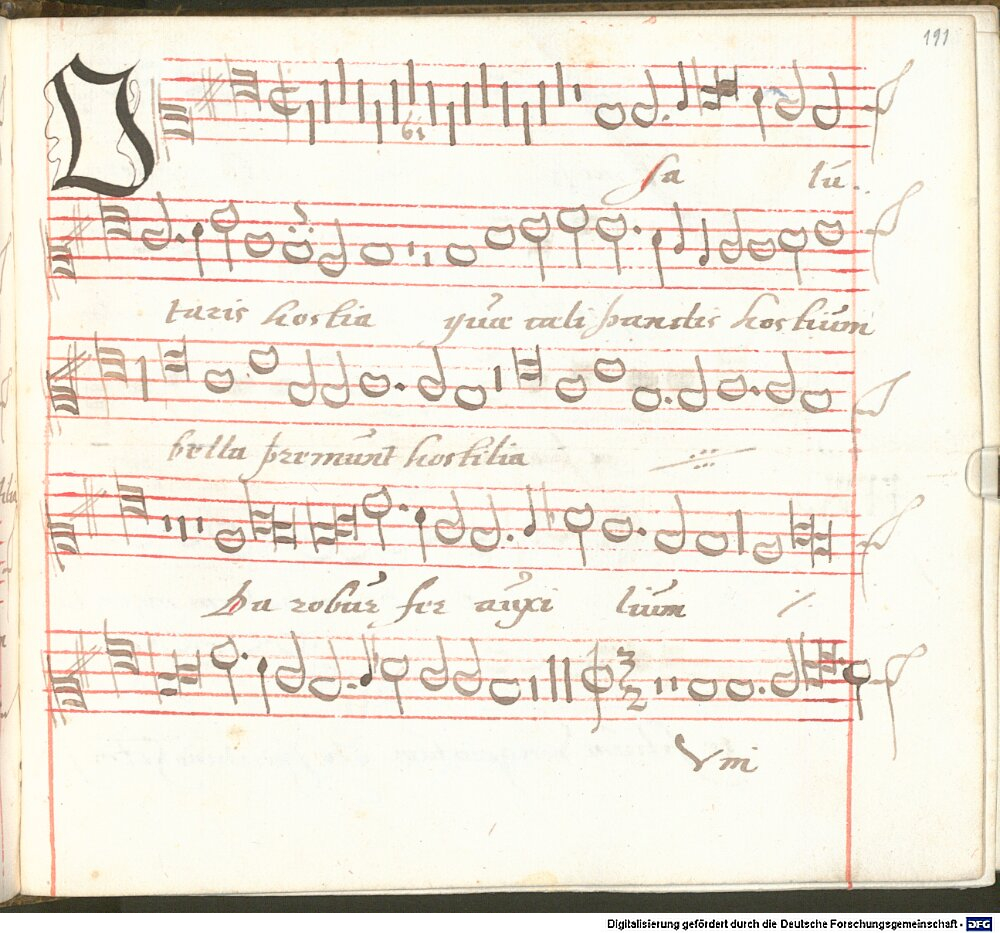 191
O
61
sa lu..
taris hostia quæ cæli pandis hostium
bella premunt hostilia
Da robur fer auxi lium
3
2
Vni
Digitalisierung gefördert durch die Deutsche Forschungsgemeinschaft - DFG